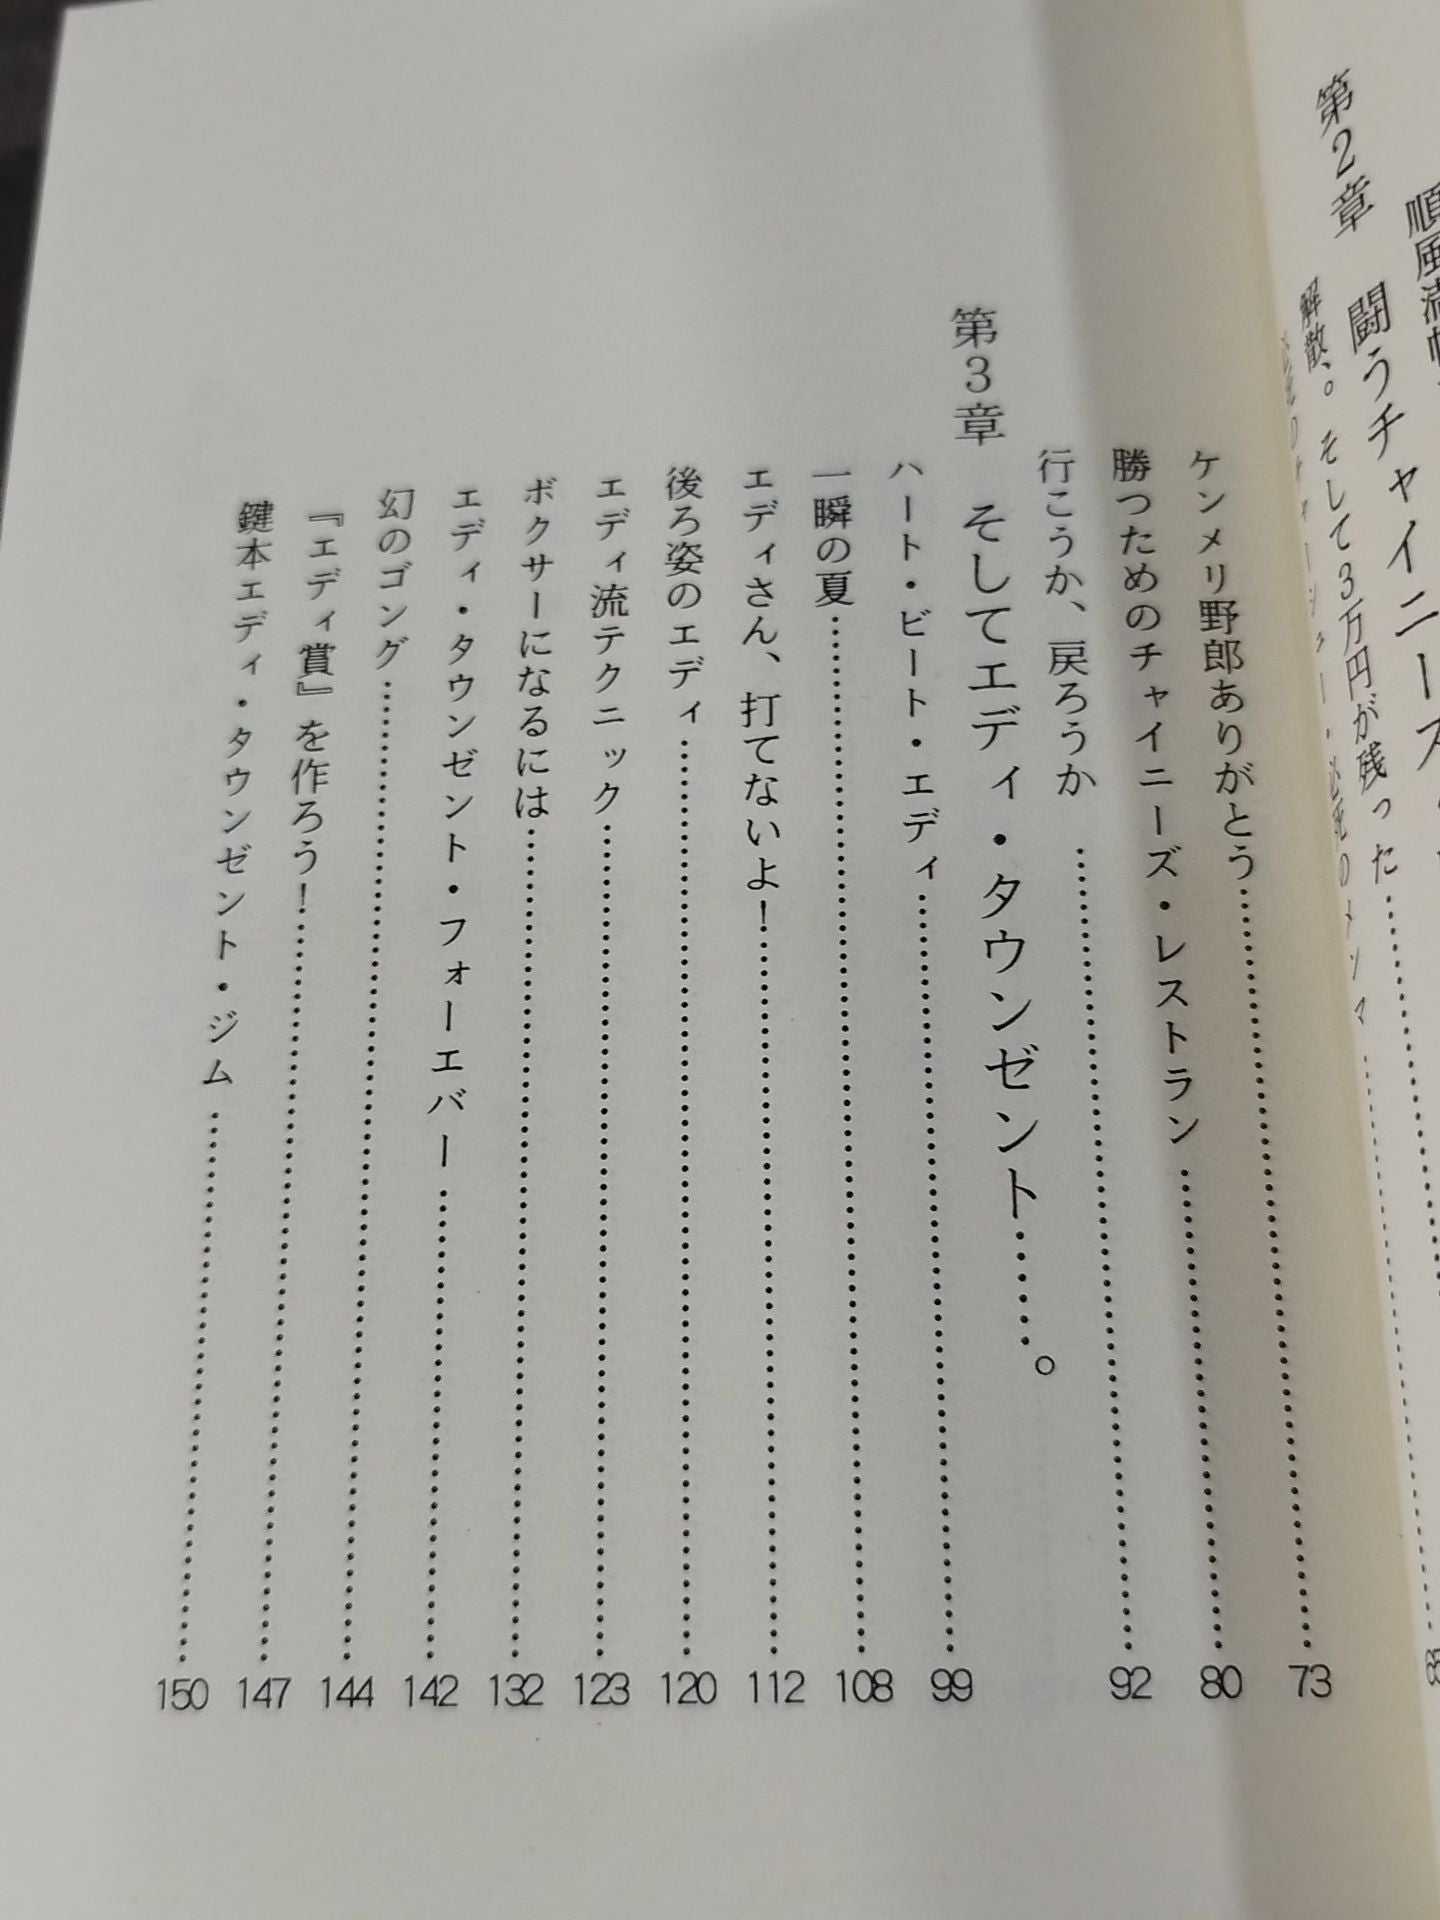 第2章
解散、。そして3万円が残った……
ケンメリ野郎ありがとう……73
勝つためのチャイニーズ・レストラン……80
行こうか、戻ろうか……92
第3章　そしてエディ・タウンゼント……。
ハート・ビート・エディ……99
一瞬の夏……108
エディさん、打てないよ！……112
後ろ姿のエディ……120
エディ流テクニック……123
ボクサーになるには……132
エディ・タウンゼント・フォーエバー……142
幻のゴング……144
『エディ賞』を作ろう！……147
鍵本エディ・タウンゼント・ジム……150